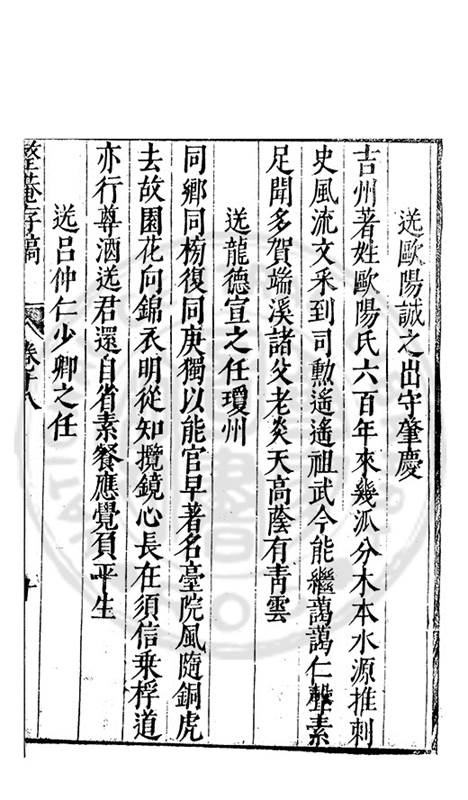 送歐陽誠之出守肇慶
吉州著姓歐陽氏六百年來幾派分木本水源推刺
史風流文采到司勳遙遙祖武今能繼藹藹仁聲素
足聞多賀端溪諸父老炎天高蔭有青雲
送龍德宣之任瓊州
同鄉同榜復同庚獨以能官早著名臺院風隨銅虎
去故園花向錦衣明從知攬鏡心長在須信乗桴道
亦行尊酒送君還自省素餐應覺負平生
送呂仲仁少卿之任
整菴存稿 卷十八 十